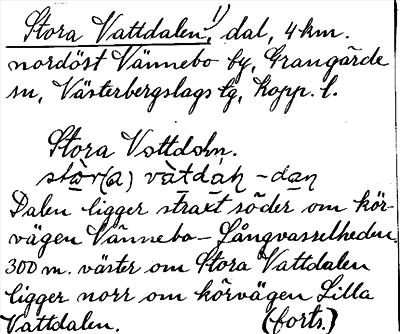 Stora Vattdalen,¹⁾ dal, 4 km.
nordöst Vännebo by, Grangärde
sn, Västerbergslags tg, Kopp. l.
Stora Vattdaln.
stòr(a) vàtdáṇ -daṇ
Dalen ligger strax söder om kör-
vägen Vännebo – Långvasselheden.
300 m. väster om Stora Vattdalen
ligger norr om körvägen Lilla
Vattdalen. (forts.)